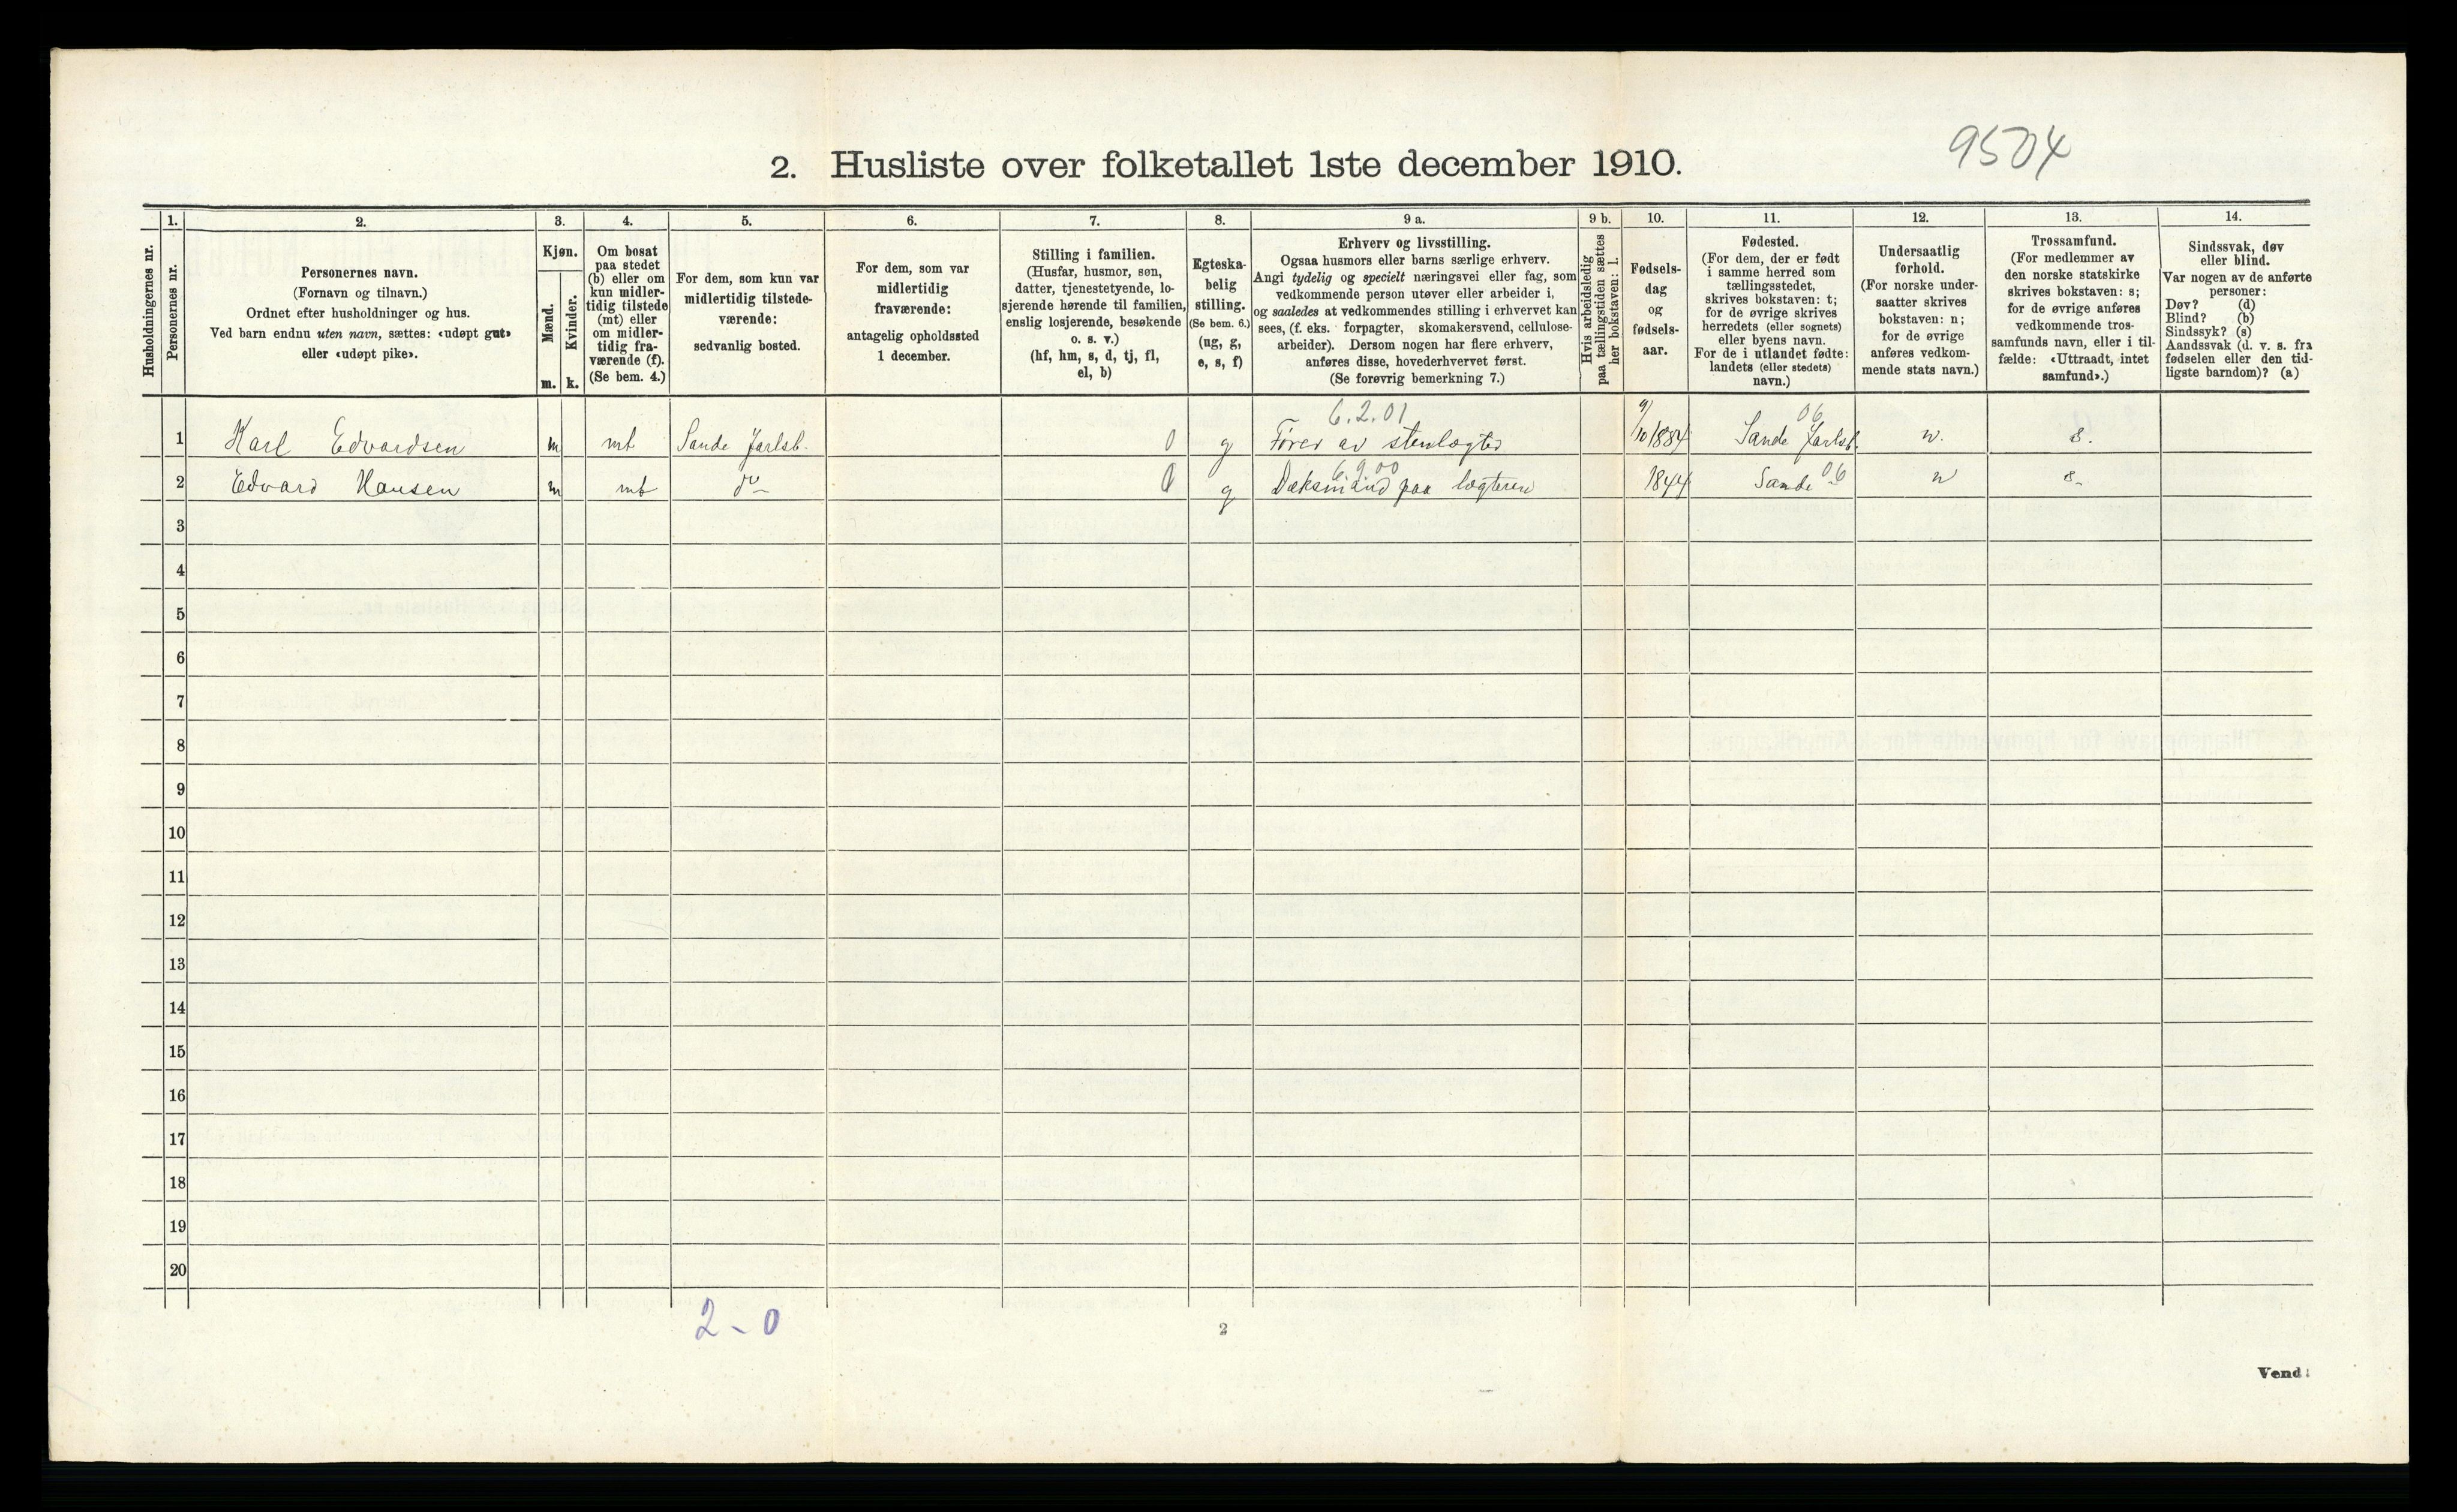 9504
2. Husliste over folketallet 1ste december 1910.
Husholdningernes nr.
1.
Personernes nr.
2.
Personernes navn.
(Fornavn og tilnavn.)
Ordnet efter husholdninger og hus.
Ved barn endnu uten navn, sættes: «udøpt gut»
eller «udøpt pike».
3.
Kjøn.
Mænd.
Kvinder.
m. k.
4.
Om bosat
paa stedet
(b) eller om
kun midler-
tidig tilstede
(mt) eller
om midler-
tidig fra-
værende (f).
(Se bem. 4.)
5.
For dem, som kun var
midlertidig tilstede-
værende:
sedvanlig bosted.
6.
For dem, som var
midlertidig
fraværende:
antagelig opholdssted
1 december.
7.
Stilling i familien.
(Husfar, husmor, søn,
datter, tjenestetyende, lo-
sjerende hørende til familien,
enslig losjerende, besøkende
o. s. v.)
(hf, hm, s, d, tj, fl,
el, b)
8.
Egteska-
belig
stilling.
(Se bem. 6.)
(ug, g,
e, s, f)
9 a.
Erhverv og livsstilling.
Ogsaa husmors eller barns særlige erhverv.
Angi tydelig og specielt næringsvei eller fag, som
vedkommende person utøver eller arbeider i,
og saaledes at vedkommendes stilling i erhvervet kan
sees, (f. eks. forpagter, skomakersvend, cellulose-
arbeider). Dersom nogen har flere erhverv,
anføres disse, hovederhvervet først.
(Se forøvrig bemerkning 7.)
9 b.
Hvis arbeidsledig
paa tællingstiden sættes
her bokstaven: l.
10.
Fødsels-
dag
og
fødsels-
aar.
11.
Fødested.
(For dem, der er født
i samme herred som
tællingsstedet,
skrives bokstaven: t;
for de øvrige skrives
herredets (eller sognets)
eller byens navn.
For de i utlandet fødte:
landets (eller stedets)
navn.)
12.
Undersaatlig
forhold.
(For norske under-
saatter skrives
bokstaven: n;
for de øvrige
anføres vedkom-
mende stats navn.)
13.
Trossamfund.
(For medlemmer av
den norske statskirke
skrives bokstaven: s;
for de øvrige anføres
vedkommende tros-
samfunds navn, eller i til-
fælde: «Uttraadt, intet
samfund».)
14.
Sindssvak, døv
eller blind.
Var nogen av de anførte
personer:
Døv? (d)
Blind? (b)
Sindssyk? (s)
Aandssvak (d. v. s. fra
fødselen eller den tid-
ligste barndom)? (a)
6.2.01 06
1 Karl Edvardsen m mt Sande Jarlsb. 0 g Fører av stenlægter 9/10 1884 Sande Jarlsb. n. s.
6.9.00 06
2 Edvard Hansen m mt do 0 g Dæksmand paa lægteren 1844 Sande n s
3
4
5
6
7
8
9
10
11
12
13
14
15
16
17
18
19
20
2 - 0
2
Vend!